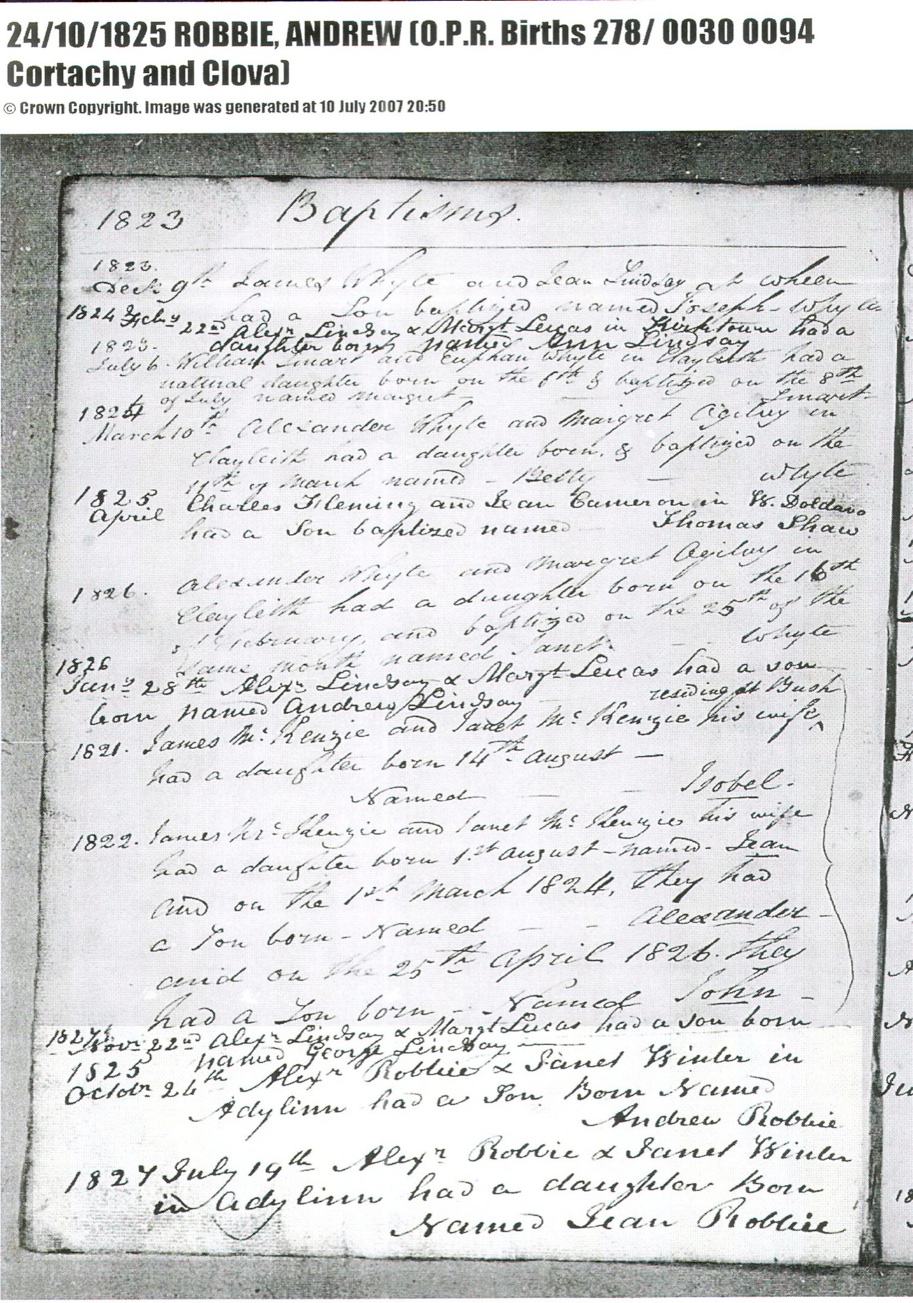 24/10/1825 ROBBIE, ANDREW (O.P.R. Births 278/ 0030 0094
Cortachy and Clova)
© Crown Copyright. Image was generated at 10 July 2007 20:50
1823 Baptisms.
1823.
Decr 9th James Whyte and Jean Lindsay at wheen
had a Son baptized named Joseph - Whyte
1824 Feby 22nd Alexr Lindsay & Margt Lucas in Kirktown had a
daughter born named Ann Lindsay
1823.
July 6. William Smart and Euphan Whyte in Clayleith had a
natural daughter born on the 6th & baptized on the 8th
of July named Margret Smart
1824
March 10th Alexander Whyte and Margret Ogilvy in
Clayleith had a daughter born, & baptized on the
11th of March named - Betty - Whyte
1825 Charles Fleming and Jean Cameron in W.
April had a Son baptized named Thomas Shaw
1826. Alexander Whyte and Margret Ogilvy in
Clayleith had a daughter born on the 16th
of February, and baptized on the 25th of the
same month named Janet. - Whyte
1826
Jany 28th Alexr Lindsay & Margt Lucas had a son
born named Andrew Lindsay
residing at Bush
1821. James Mc Kenzie and Janet Mc Kenzie his wife ^
had a daughter born 14th August -
Named - - Isobel.
1822. James Mc Kenzie and Janet Mc Kenzie his wife
had a daughter born 1st August - named - Jean
and on the 1st March 1824, they had
a Son born - Named - - Alexander -
and on the 25th April 1826. they
had a Son born - Named John -
1827
Novr 22nd Alexr Lindsay & Margt Lucas had a son born
named George Lindsay
1825
Octobr 24th Alexr Robbie & Janet Winter in
Adylinn had a Son Born Named
Andrew Robbie
1827 July 19th Alexr Robbie & Janet Winter
in Adylinn had a daughter Born
Named Jean Robbie